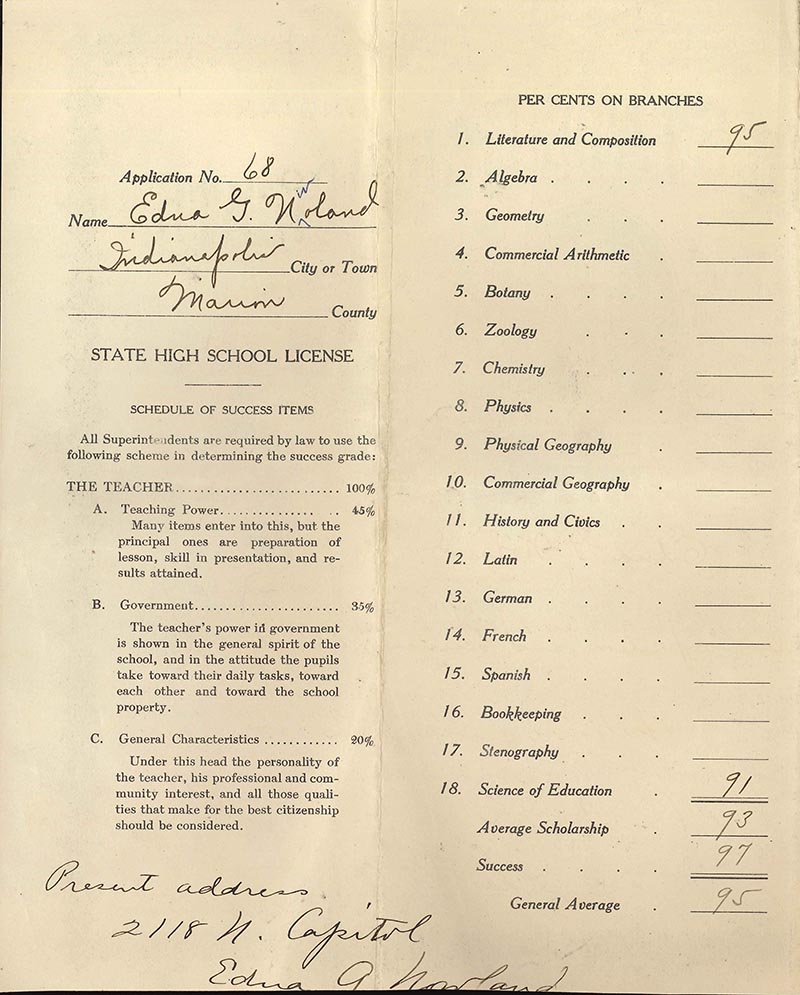 Application No. 68
Name Edna G. Nwoland
Indianapolis City or Town
Marion County
STATE HIGH SCHOOL LICENSE
SCHEDULE OF SUCCESS ITEMS
All Superintendents are required by law to use the
following scheme in determining the success grade:
THE TEACHER........................... 100%
A. Teaching Power............... .. 45%
Many items enter into this, but the
principal ones are preparation of
lesson, skill in presentation, and re-
sults attained.
B. Government........................ 35%
The teacher's power in government
is shown in the general spirit of the
school, and in the attitude the pupils
take toward their daily tasks, toward
each other and toward the school
property.
C. General Characteristics ............ 20%
Under this head the personality of
the teacher, his professional and com-
munity interest, and all those quali-
ties that make for the best citizenship
should be considered.
Present address
2118 N. Capitol
Edna G Nowland
PER CENTS ON BRANCHES
1. Literature and Composition 95
2. Algebra . . . .
3. Geometry . . .
4. Commercial Arithmetic .
5. Botany . . . .
6. Zoology . . .
7. Chemistry . . .
8. Physics . . . .
9. Physical Geography .
10. Commercial Geography .
11. History and Civics . .
12. Latin . . . .
13. German . . . .
14. French . . . .
15. Spanish . . . .
16. Bookkeeping . . .
17. Stenography . . .
18. Science of Education . 91
Average Scholarship . 93
Success . . . . 97
General Average . 95